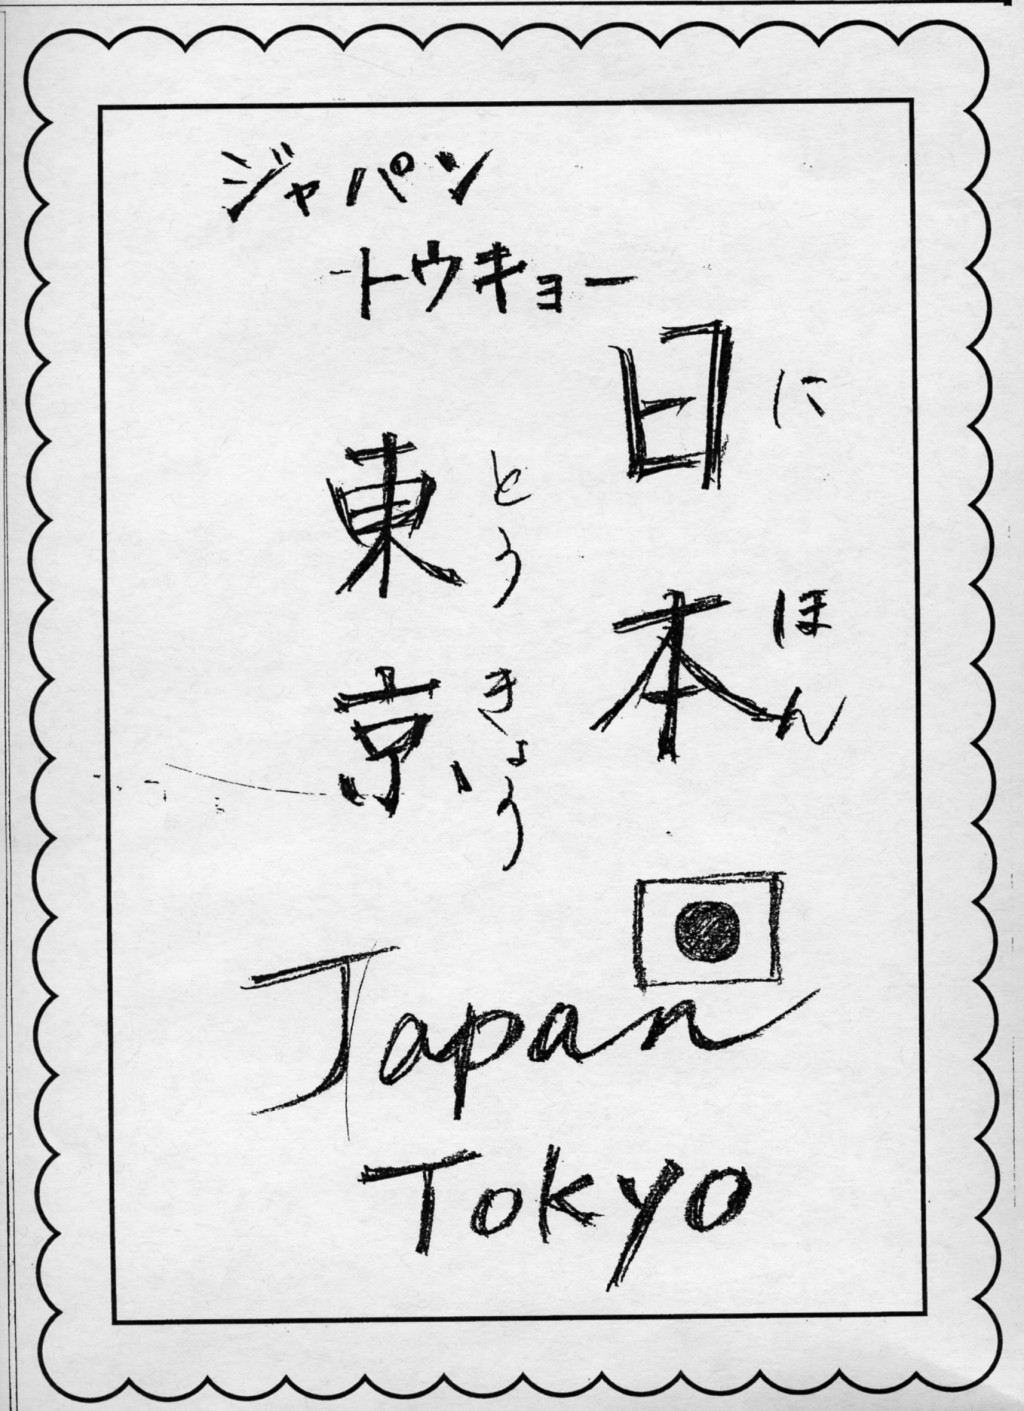 ジャパン
トウキョー
日本
にほん
東京
とうきょう
Japan
Tokyo